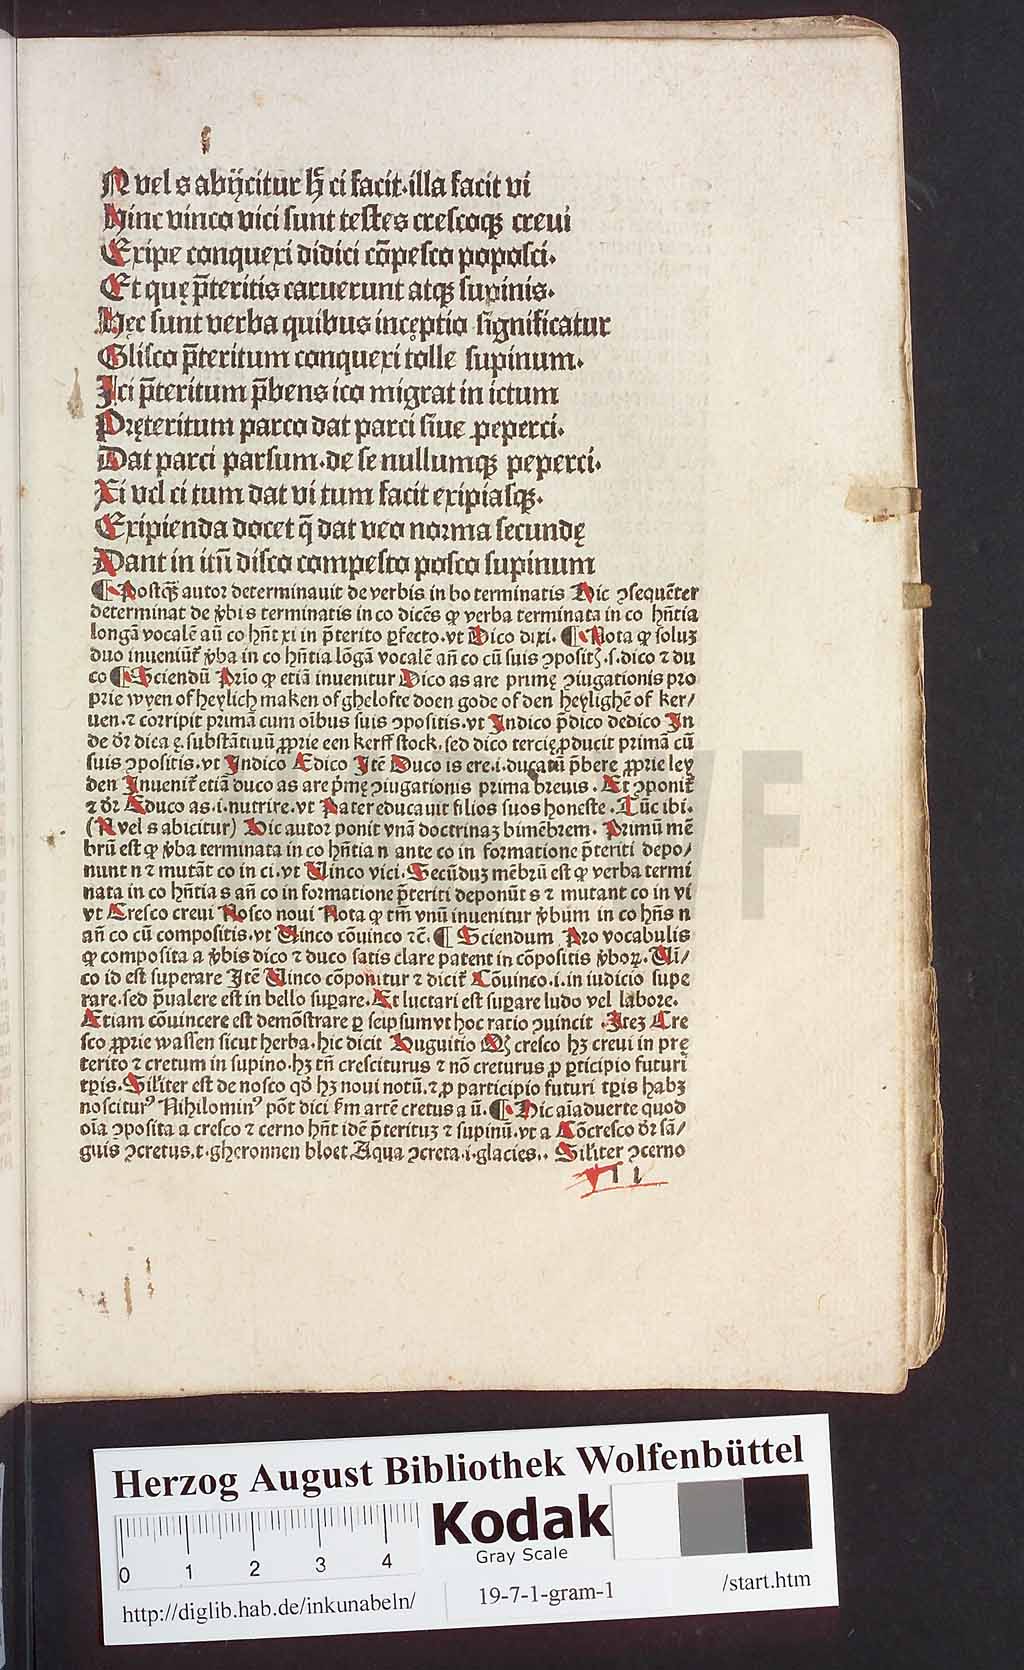 N vel s abijcitur hͦ ci facit·illa facit vi
Hinc vinco vici sunt testes crescoqꝫ creui
Exipe conquexi didici cōpesco poposci·
Et quę p̄teritis caruerunt atqꝫ supinis·
Hęc sunt verba quibus inceptio significatur
Glisco p̄teritum conquexi tolle supinum·
Ici p̄teritum p̄bens ico migrat in ictum
Pręteritum parco dat parci siue peperci·
Dat parci parsum·de se nullumqꝫ peperci·
Xi vel ci tum dat vi tum facit exipiasqꝫ·
Exipienda docet q̄ dat veo norma secundę
Dant in itū disco compesco posco supinum
¶ Postqꝫ autor determinauit de verbis in bo terminatis Hic ꝯsequēter
determinat de v̓bis terminatis in co dicēs ꝙ verba terminata in co hn̄tia
longā vocalē an̄ co hn̄t xi in p̄terito ꝑfecto·vt Dico dixi· ¶ Nota ꝙ soluꝫ
duo inueniūt̄ v̓ba in co hn̄tia lōgā vocalē an̄ co cū suis ꝯpositꝭ·s·dico ⁊ du
co ¶ Sciendū Prio ꝙ etiā inuenitur Dico as are primę ꝯiugationis pro
prie wyen of heylich maken of ghelofte doen gode of den heylighē of ker/
uen·⁊ corripit primā cum oībus suis ꝯpositis·vt Indico p̄dico dedico In
de dr̄ dica ę·substātiuū ꝓprie een kerff stock·sed dico tercię ꝓducit primā cū
suis ꝯpositis·vt Indico Ædico Itē Duco is ere·i·ducatū p̄bere ꝓprie ley
den Inuenit̄ etiā duco as are p̓mę ꝯiugationis prima breuis· Et ꝯponit̄
⁊ dr̄ Æduco as·i·nutrire·vt Pater educauit filios suos honeste· Tūc ibi·
(N vel s abicitur) Hic autor ponit vnā doctrinaꝫ bimēbrem· Primū mē
brū est ꝙ v̓ba terminata in co hn̄tia n ante co in formatione p̄teriti depo/
nunt n ⁊ mutāt co in ci·vt Vinco vici·Secūduꝫ mēbrū est ꝙ verba termi
nata in co hn̄tia s an̄ co in formatione p̄teriti deponūt s ⁊ mutant co in vi
vt Cresco creui Nosco noui Nota ꝙ tm̄ vnū inuenitur v̓bum in co hn̄s n
an̄ co cū compositis·vt Vinco cōuinco ⁊c̄· ¶ Sciendum Pro vocabulis
ꝙ composita a v̓bis dico ⁊ duco satis clare patent in cōpositis v̓boꝝ·Vi/
co id est superare Itē Vinco cōponitur ⁊ dicit̄ Cōuinco·i·in iudicio supe
rare·sed p̄ualere est in bello suꝑare·Et luctari est suꝑare ludo vel labore·
Etiam cōuincere est demōstrare ꝑ seipsum vt hoc ratio ꝯuincit ·Iteꝫ Cre
sco ꝓprie wassen sicut herba·hic dicit Huguitio Qꝫ cresco hꝫ creui in prę
terito ⁊ cretum in supino·hꝫ tn̄ cresciturus ⁊ nō creturus ꝓ ꝑticipio futuri
tꝑis·Silīter est de nosco qd̓ hꝫ noui notū·⁊ ꝓ participio futuri tꝑis habꝫ
nosciturꝰ Nihilominꝰ pōt dici fm artē cretus a ū· ¶ Hic aīaduerte quod
oīa ꝯposita a cresco ⁊ cerno hn̄t idē p̄terituꝫ ⁊ supinū·vt a Cōcresco dr̄ sā/
guis ꝯcretus·t·gheronnen bloet Aqua ꝯcreta·i·glacies·· Silīter ꝯcerno
Herzog August Bibliothek Wolfenbüttel
0 1 2 3 4
Kodak
Gray Scale
http://diglib.hab.de/inkunabeln/
19-7-1-gram-1
/start.htm